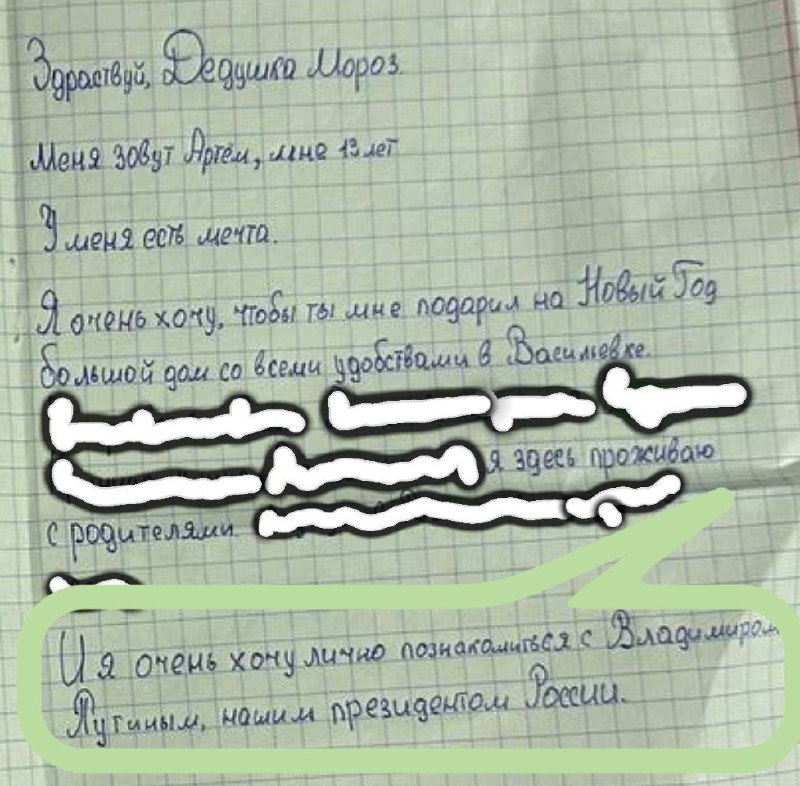 Здраствуй, Дедушка Мороз.
Меня зовут Артём, мне 13 лет
У меня есть мечта.
Я очень хочу, чтобы ты мне подарил на Новый Год
большой дом со всеми удобствами в Васильевке.
я здесь проживаю
с родителями
И я очень хочу лично познакомиться с Владимиром
Путиным, нашим президентом России.